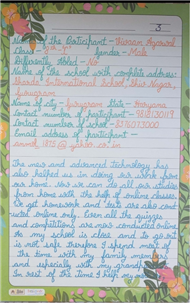 3
Name of the Participant - Vikram Agarwal
Class - 9th - 'X' Gender - Male
Differently Abled - No
Name of the school with complete address:
Bharti International School, Shiv Nagar,
Gurugram
Name of city - Gurugram State - Haryana
Contact number of participant -
Contact number of school -
Email address of participant -
The new and advanced technology has
also helped us in doing our work from
our home. Now we can do all our studies
from home with the help of online classes.
We get homework and tests are also cond-
ucted online only. Even all the quizzes
and competitions are now conducted online.
As my school is close and to go out
is not safe therefore I spend most of
the time with my family members
and especially with my grandparents.
In rest of the time I